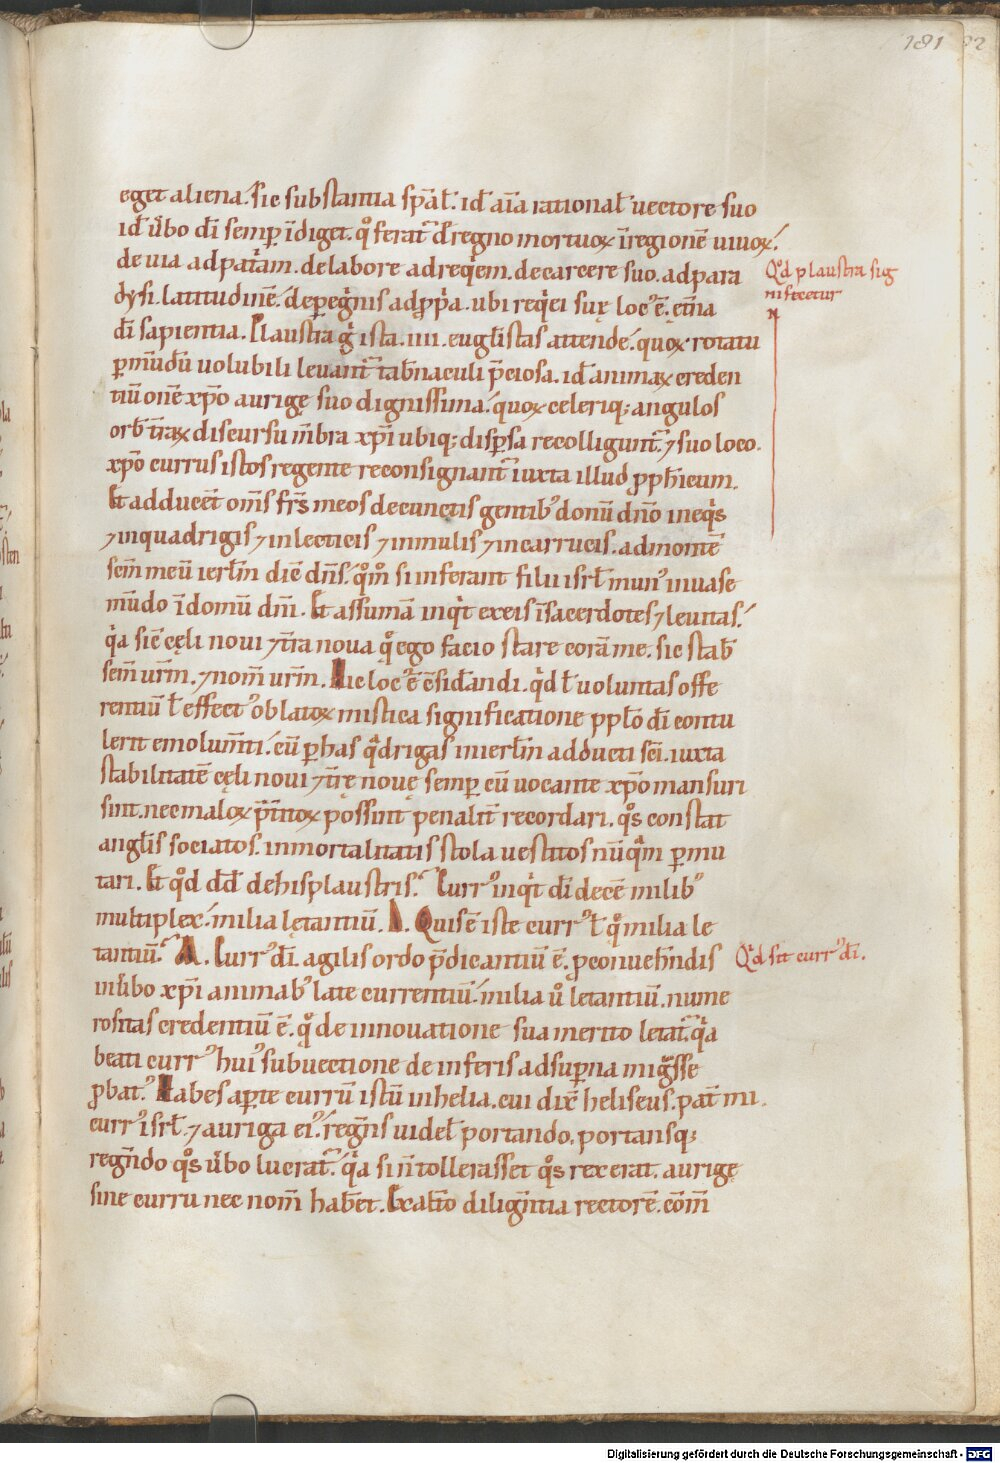 181
eget aliena. Sic substantia sp̄al̄. id̄ aīa rational̄ uectore suo
id̄ ūbo dī semp̄ īdiget. qͦ ferat᷑ de regno mortuoꝝ ī regionē uiuoꝝ.
de uia ad pat̄am. de labore ad reqͥem. de carcere suo. ad para
Qͦd plaustra sig
nificetur
dysi. latitudinē. de peḡnis ad ꝓp̄a. ubi reqͥei suę locꝰ ē. et̄na
dī sapientia. Plaustra g̊ ista. iiii. eugl̄istas attende. quoꝝ rotatu
ꝑ mūdū uolubili leuant᷑ tab̄naculi p̄ciosa. id̄ animaꝝ creden
tiū onē xp̄o aurigę suo dignissima. quoꝝ celeriqꝫ angulos
orb̄ t̄raꝝ discursu m̄bra xp̄i ubiqꝫ disp̄sa recolligunt᷑. ⁊ suo loco.
xp̄o currus istos regente reconsignant᷑ iuxta illud ꝓph̄icum.
Et adducēt om̄s fr̄s meos de cunctis gentibꝰ donū dn̄o in eqͥs
⁊ in quadrigis ⁊ in lecticis ⁊ in mulis ⁊ in carrucis. ad montē
scm̄ meū ierl̄m dic̄ dn̄s. qͦm̄ si inferant filii isrl̄ munꝰ in uase
mūdo ī domū dn̄i. Et assumā inqͥt ex eis ī sacerdotes ⁊ leuitas.
qͥa sic̄ cęli noui ⁊ t̄ra noua qͦ ego facio stare corā me. sic stab̄
sem̄ urm̄. ⁊ nom̄ urm̄. Hic locꝰ ē c̄sid̄andi. qͥd l̄ uoluntas offe
rentiū l̄ effectꝰ oblatoꝝ mistica significatione ppl̄o dī contu
lerit emolum̄ti. cū ꝑ has qͣdrigas in ierl̄m adducti sc̄i. iuxta
stabilitatē cęli noui ⁊ t̄rę nouę semp̄ cū uocante xp̄o mansuri
sint. nec maloꝝ p̄t̄itoꝝ possint penalit̄ recordari. qͦs constat
angl̄is sociatos. inmortalitatis stola uestitos nūqͣm ꝑmu
tari. Et qͦd dd̄ de his plaustris. Currꝰ inqͥt dī decē milibꝰ
multiplex. milia lętantiū. D. Quis ē iste currꝰ l̄ qͦ milia le
tantiū. M. Currꝰ dī. agilis ordo p̄dicantiū ē. ꝓ conueh̄ndis
Qͥd sit currꝰ dī.
in ūbo xp̄i animabꝰ late currentiū. milia ů letantiū. nume
rositas credentiū ē. qͦ de innouatione sua merito letat᷑. qͥa
beati currꝰ huiꝰ subuectione de inferis ad sup̄na migͣsse
ꝓbat᷑. Habes aꝑte currū istū in helia. cui dic̄ heliseus. pat̄ mi.
currꝰ isrl̄ ⁊ auriga eiꝰ. regens uidel̄ portando. portansqꝫ
regendo qͦs ūbo lucrat᷑. qͥa si n̄ tollerasset qͦs rexerat. aurigę
sine curru nec nom̄ haberet. Exacto diligentia rectorē. com̄
Digitalisierung gefördert durch die Deutsche Forschungsgemeinschaft - DFG